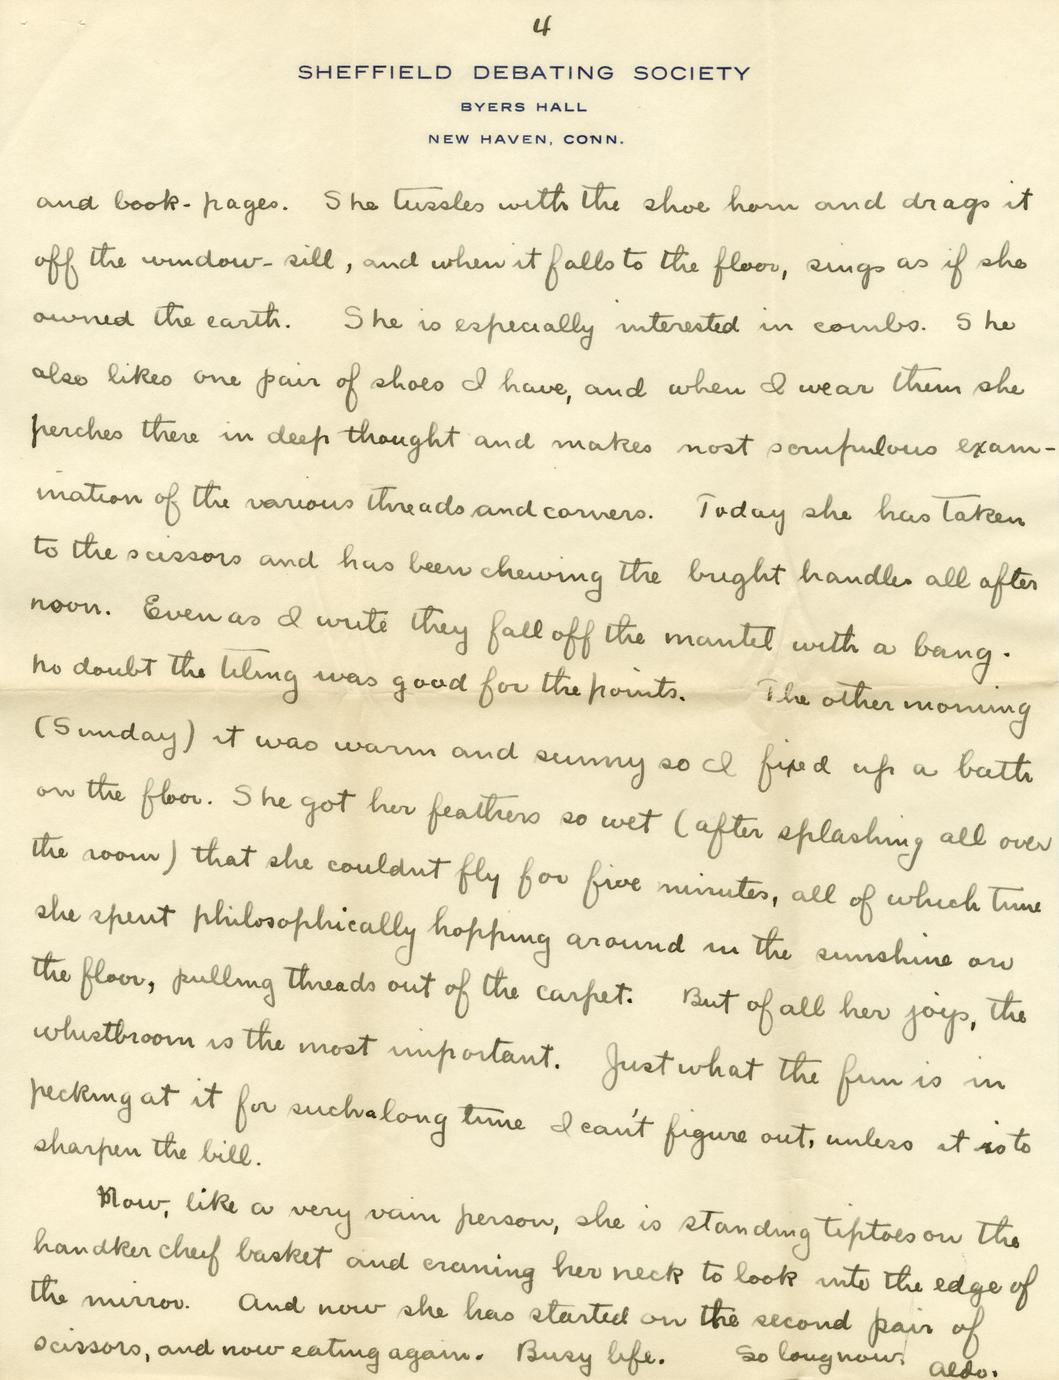 4
SHEFFIELD DEBATING SOCIETY
BYERS HALL
NEW HAVEN, CONN.
and book-pages. She tussles with the shoe horn and drags it
off the window-sill, and when it falls to the floor, sings as if she
owned the earth. She is especially interested in combs. She
also likes one pair of shoes I have, and when I wear them she
perches there in deep thought and makes most scrupulous exam-
ination of the various threads and corners. Today she has taken
to the scissors and has been chewing the bright handles all after
noon. Even as I write they fall off the mantel with a bang.
no doubt the tiling was good for the points. The other morning
(Sunday) it was warm and sunny so I fixed up a bath
on the floor. She got her feathers so wet (after splashing all over
the room) that she couldnt fly for five minutes, all of which time
she spent philosophically hopping around in the sunshine on
the floor, pulling threads out of the carpet. But of all her joys, the
whistbroom is the most important. Just what the fun is in
pecking at it for such a long time I can't figure out, unless it is to
sharpen the bill.
Now, like a very vain person, she is standing tiptoes on the
handkercheif basket and craning her neck to look into the edge of
the mirror. And now she has started on the second pair of
scissors, and now eating again. Busy life. So long now.
Aldo.